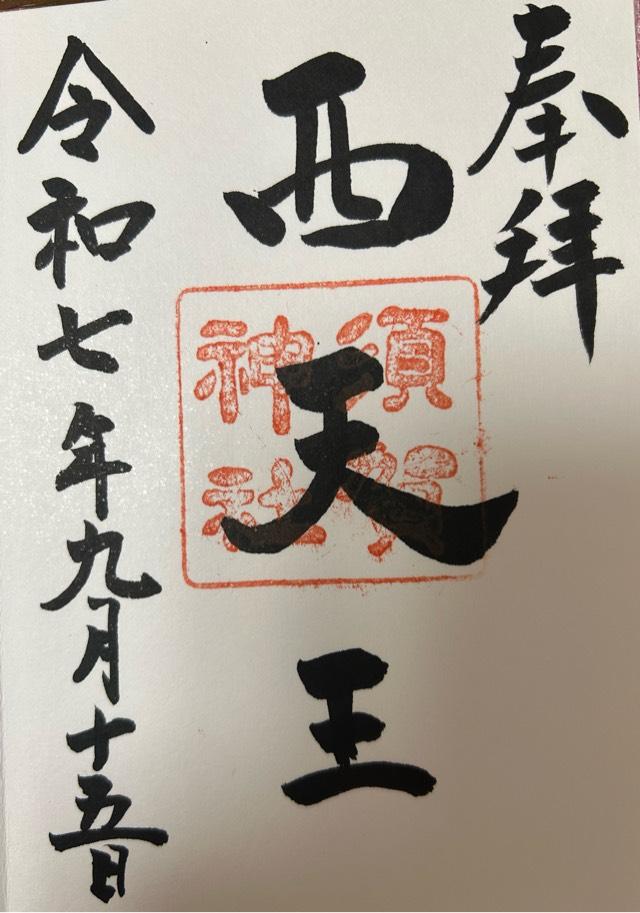 奉拝
西天王
須賀
神社
令和七年九月十五日